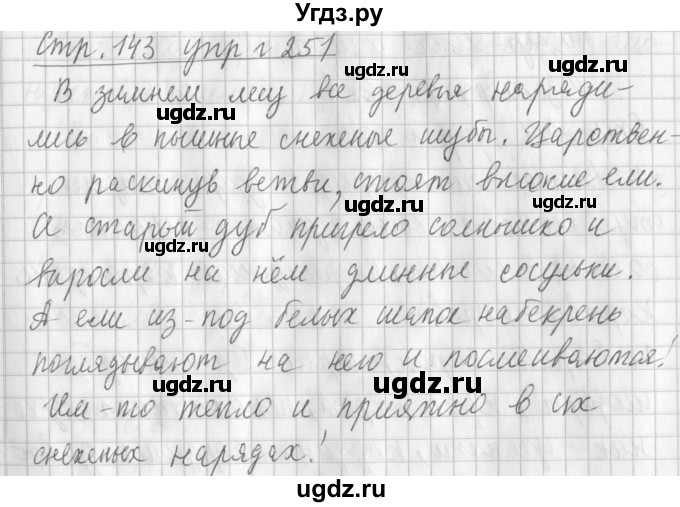 Угдз.ру
Стр. 143 упр г 251
В зимнем лесу все деревья наряди-
лись в пышные снежные шубы. Царствен-
но раскинув ветви, стоят высокие ели.
А старый дуб пригрело солнышко и
выросли на нём длинные сосульки.
А ели из-под белых шапок набекрень
поглядывают на него и посмеиваются!
Им-то тепло и приятно в их
снежных нарядах!
ugdz.ru
ugdz.ru
ugdz.ru
ugdz.ru
ugdz.ru
ugdz.ru
ugdz.ru
ugdz.ru
ugdz.ru
ugdz.ru
ugdz.ru
ugdz.ru